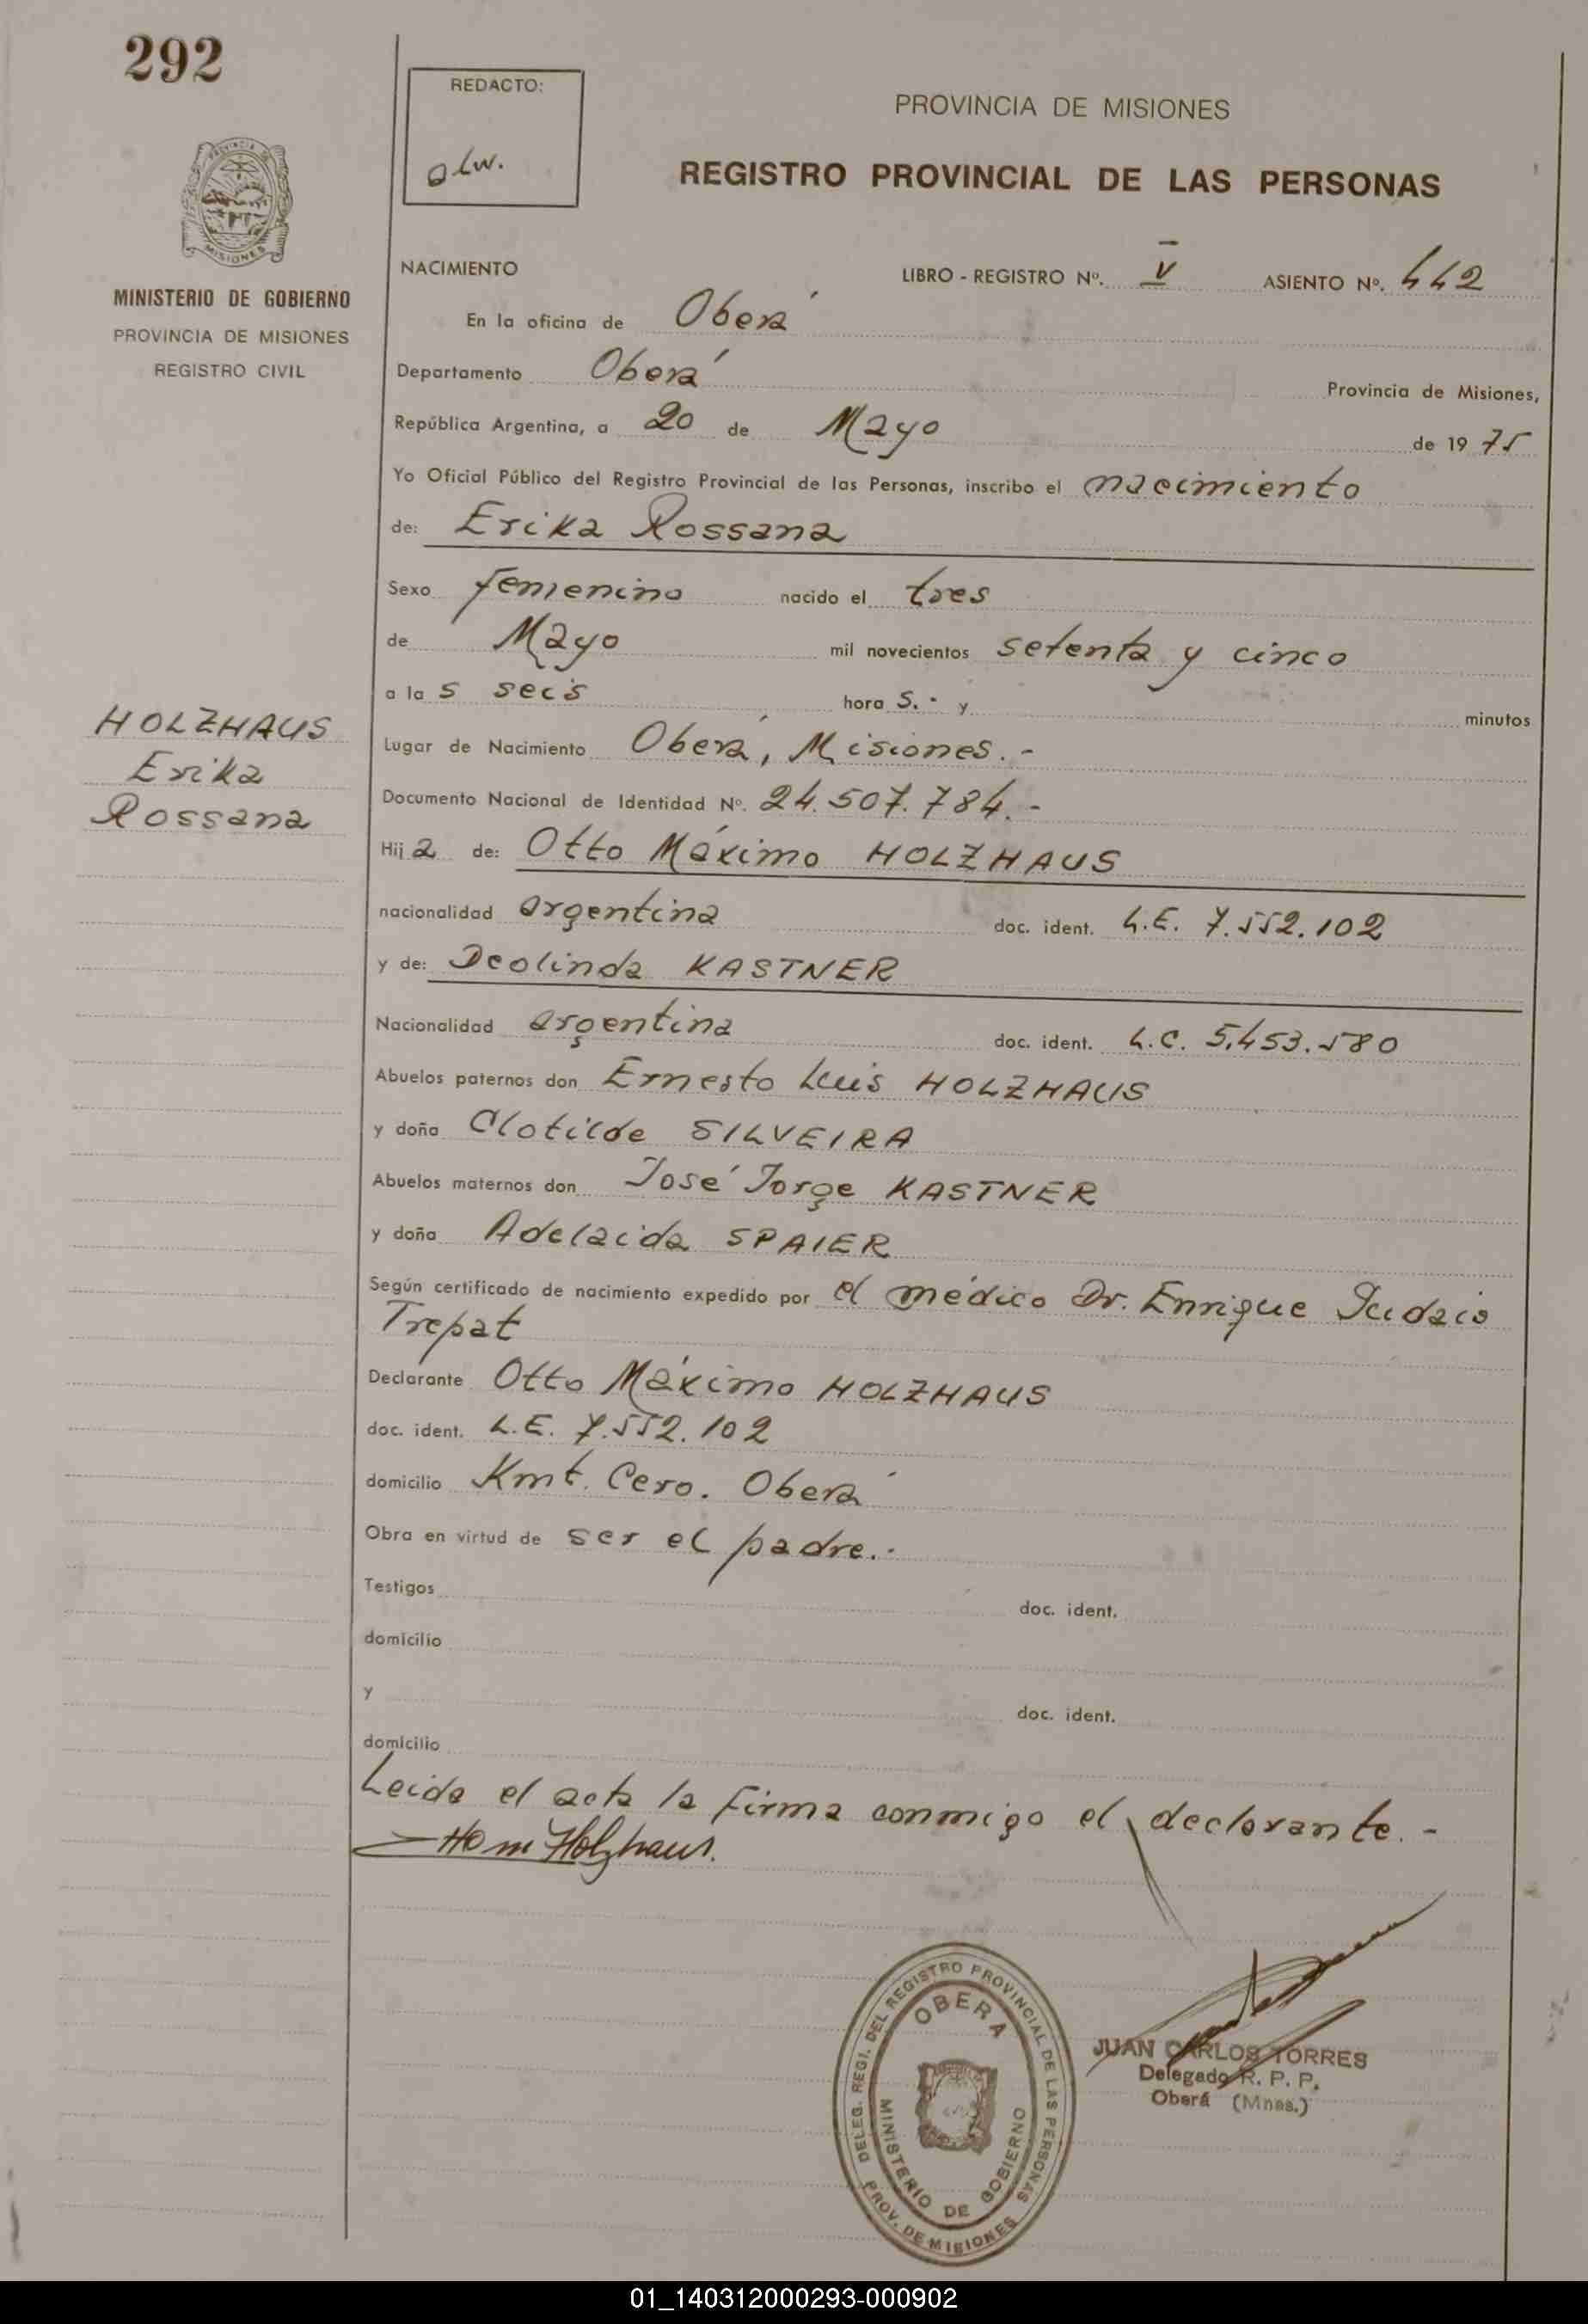 292
REDACTO:
alw.
PROVINCIA DE MISIONES
REGISTRO PROVINCIAL DE LAS PERSONAS
PROVINCIA DE
MISIONES
MINISTERIO DE GOBIERNO
PROVINCIA DE MISIONES
REGISTRO CIVIL
NACIMIENTO LIBRO - REGISTRO Nº. V ASIENTO Nº. 442
En la oficina de Oberá
Departamento Oberá Provincia de Misiones,
República Argentina, a 20 de Mayo de 1975
Yo Oficial Público del Registro Provincial de las Personas, inscribo el nacimiento
de: Erika Rossana
Sexo femenino nacido el tres
de Mayo mil novecientos setenta y cinco
a la s seis hora s.- y minutos
Lugar de Nacimiento Oberá, Misiones.-
Documento Nacional de Identidad Nº. 24.507.784.-
Hija de: Otto Máximo HOLZHAUS
nacionalidad argentina doc. ident. L.E. 7.552.102
y de: Deolinda KASTNER
Nacionalidad argentina doc. ident. L.C. 5.453.580
Abuelos paternos don Ernesto Luis HOLZHAUS
y doña Clotilde SILVEIRA
Abuelos maternos don José Jorge KASTNER
y doña Adelaida SPAIER
Según certificado de nacimiento expedido por el médico Dr. Enrique Gudaio
Trepat
Declarante Otto Máximo HOLZHAUS
doc. ident. L.E. 7.552.102
domicilio Kmt. Cero. Oberá
Obra en virtud de ser el padre.-
Testigos doc. ident.
domicilio
y doc. ident.
domicilio
Leida el acta la firma conmigo el declarante.-
Holzhaus.
HOLZHAUS
Erika
Rossana
DELEG. REGI. DEL REGISTRO PROVINCIAL DE LAS PERSONAS
OBERA
MINISTERIO DE GOBIERNO
PROV. DE MISIONES
JUAN CARLOS TORRES
Delegado R. P. P.
Oberá (Mnes.)
01_140312000293-000902